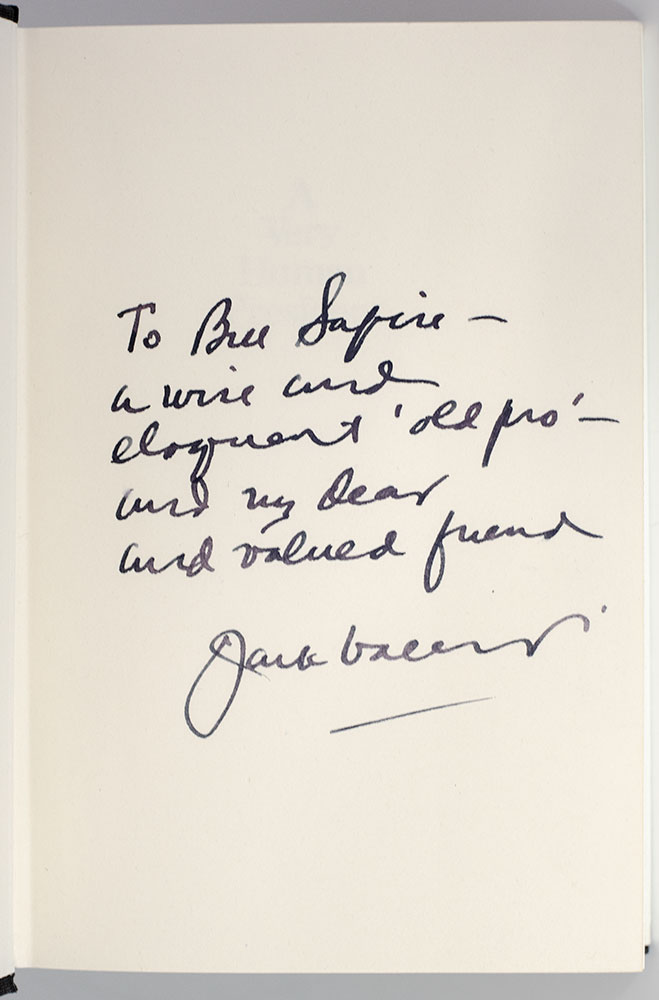 To Bill Safire –
a wise and
eloquent 'old pro' –
and my dear
and valued friend
Jack Valenti